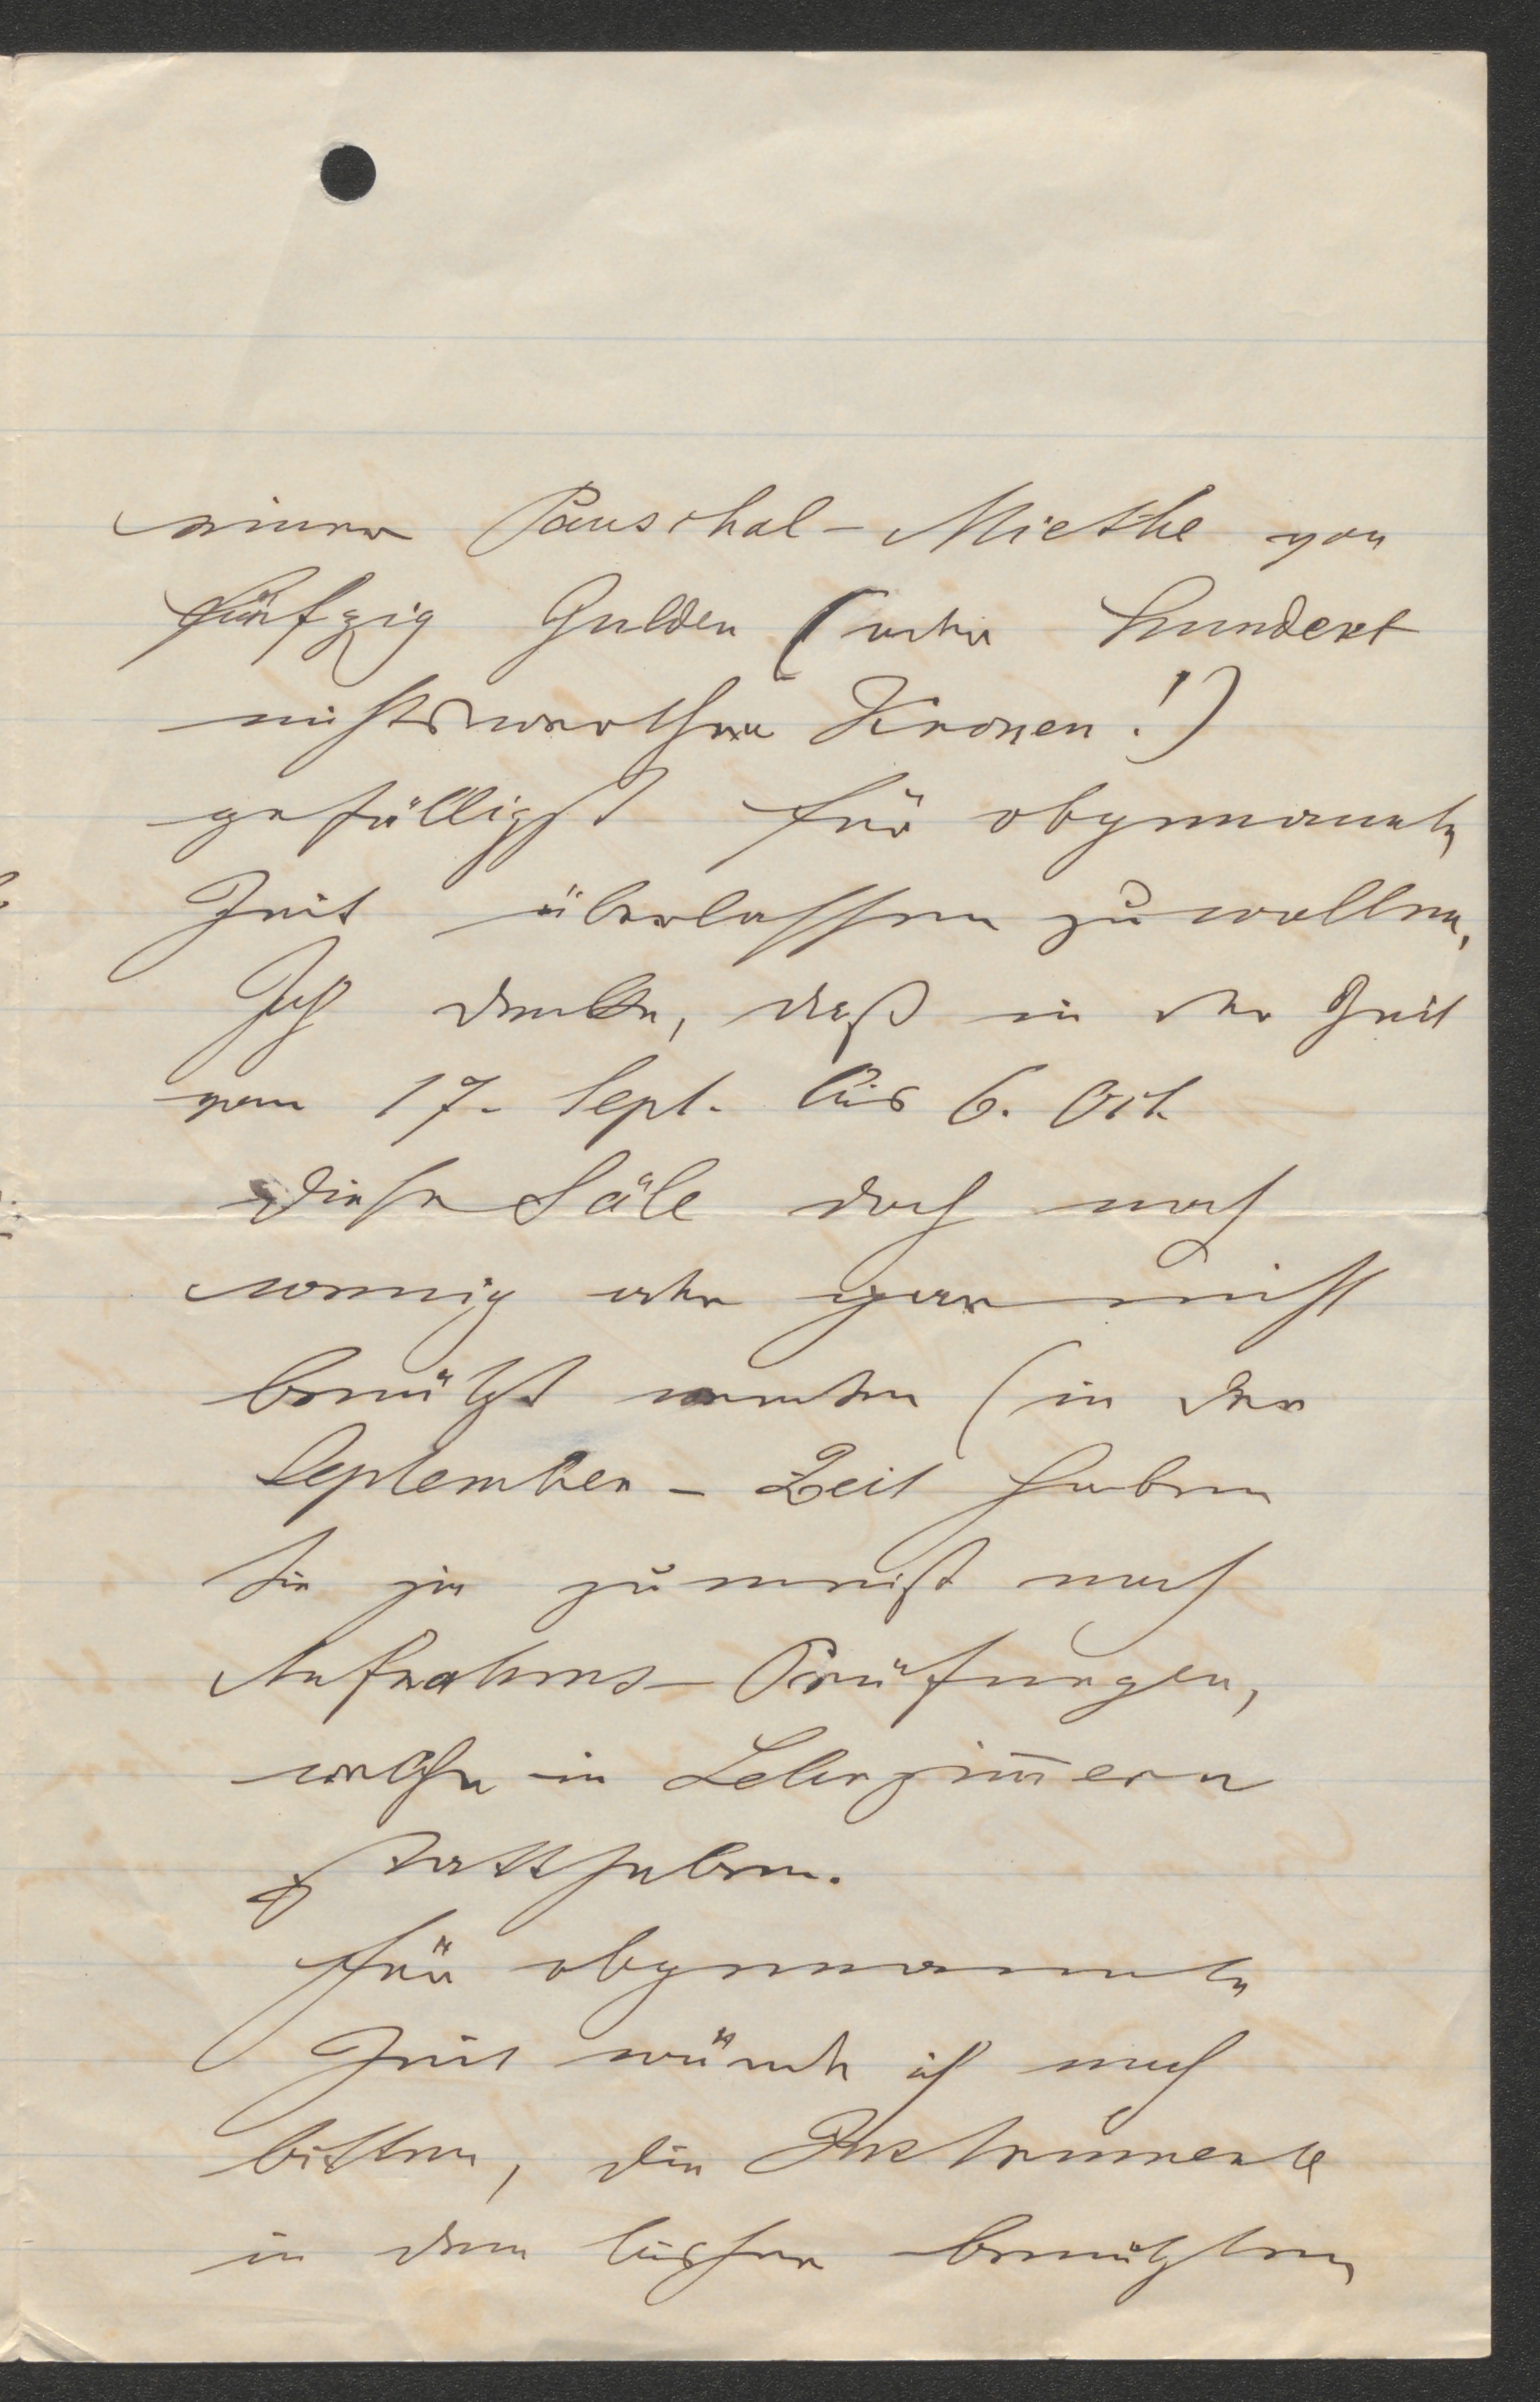 einer Pauschal-Miethe von
fünfzig Gulden (oder hundert
nichtswerthen Kronen!)
gefälligst für obgenannte
Zeit überlassen zu wollen,
Ich denke, daß in der Zeit
vom 17. Sept. bis 6. Oct.
diese Säle doch noch
wenig oder gar nicht
benützt werden (in der
September-Zeit haben
Sie ja zumeist noch
Aufnahms-Prüfungen,
welche in Lehrzim̅ern
statthaben.
Für obgenannte
Zeit würde ich auch
bitten, die Instrumente
in dem bisher benützten